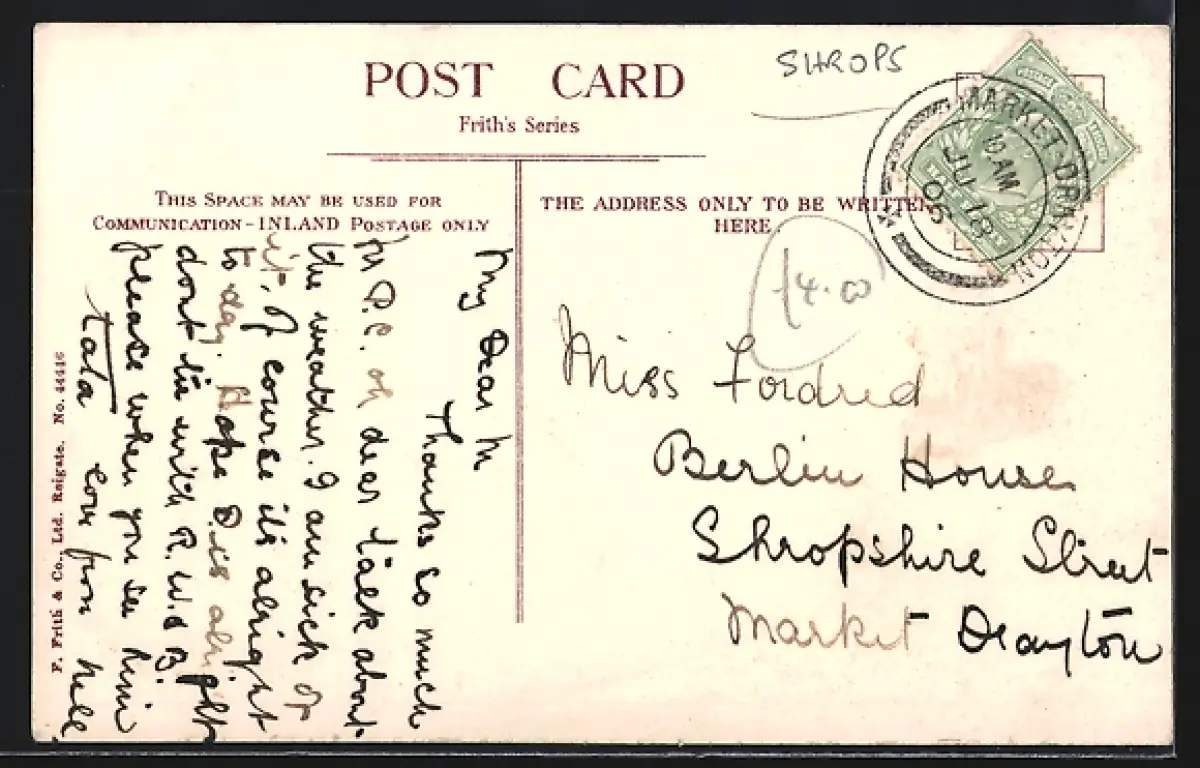 SHROPS
POST CARD
Frith's Series
MARKET-DRAYTON
10 AM
JU 18
05
THIS SPACE MAY BE USED FOR
COMMUNICATION - INLAND POSTAGE ONLY
THE ADDRESS ONLY TO BE WRITTEN
HERE
14.00
My Dear M
Thanks so much
P.C. oh dear talk about
the weather. I am sick of
it, of course its alright
to day. Hope D. is alright
dont tie with R.W.
please when you see him
Tata love from Nell
Miss Fordred
Berlin House
Shropshire Street
Market Drayton
F. Frith & Co., Ltd. Reigate. No.